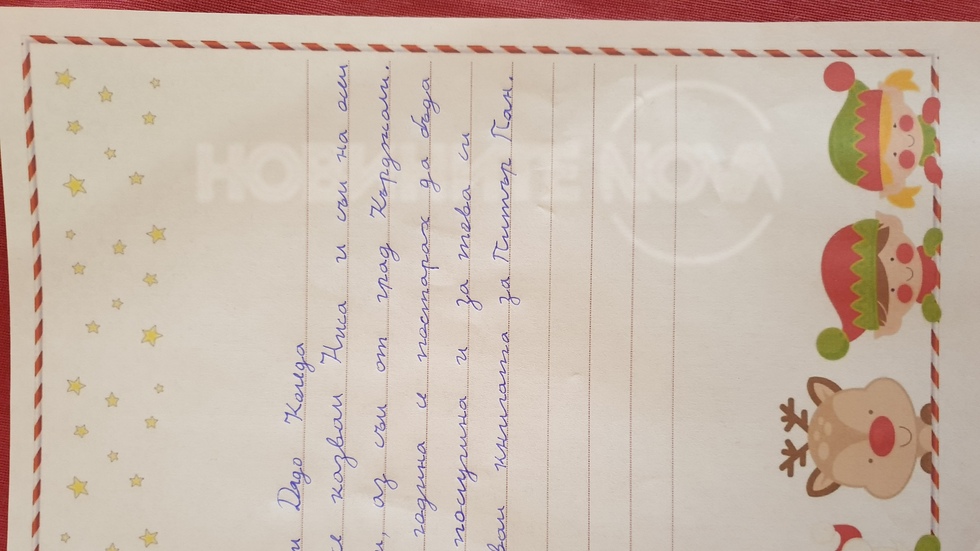 и Дядо Коледа
се казвам Ниса и съм на осем
и, аз съм от град Кърджали.
година се постарах да бъда
послушна и за това си
вам книгата за Питър Пан.
НОВИНИТЕ NOVA